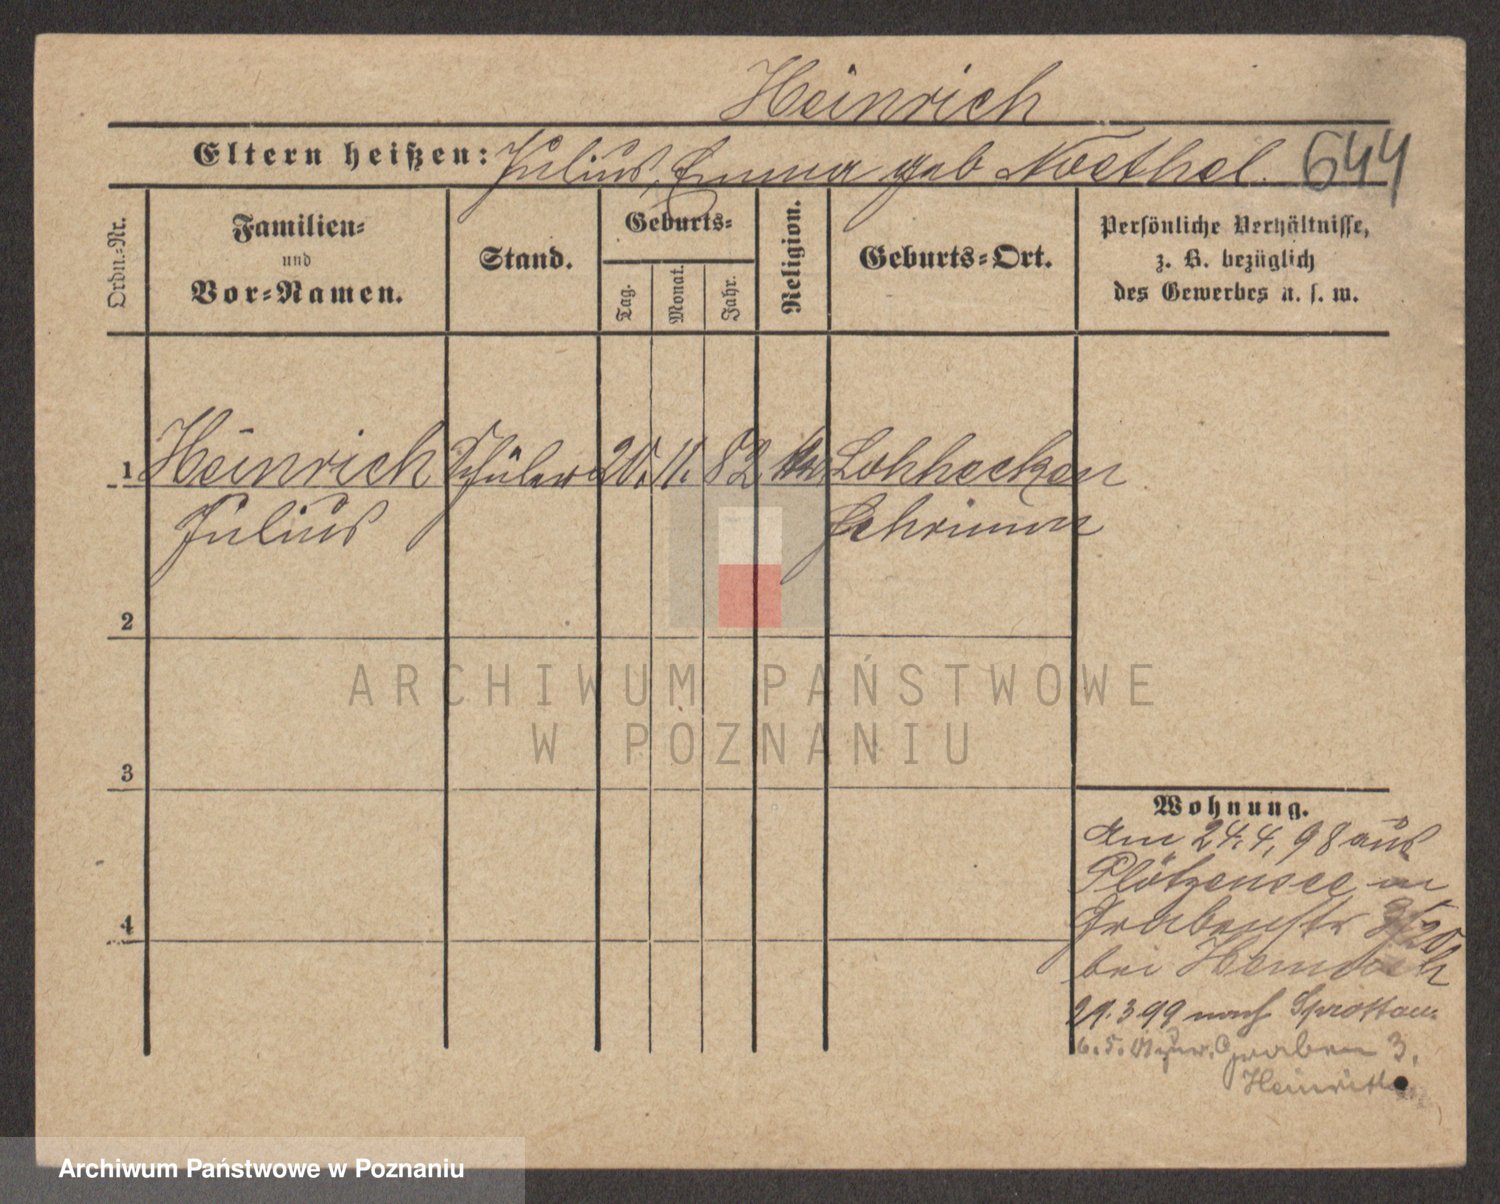 Heinrich
Eltern heißen: Julius, Emma geb Noethel.
644
Ordn.-Nr.
Familien-
und
Vor-Namen.
Stand.
Geburts-
Tag.
Monat.
Jahr.
Religion.
Geburts-Ort.
Persönliche Verhältnisse,
z. B. bezüglich
des Gewerbes u. s. w.
1 Heinrich Schüler 20. 11. 82
Julius
Schrimm
2
3
4
ARCHIWUM PAŃSTWOWE
W POZNANIU
Wohnung.
Am 24.4.98 aus
Plötzensee
Grabenstr
bei
29.3.99 nach Sprottau
zur. Graben 3.
Heinrich
Archiwum Państwowe w Poznaniu